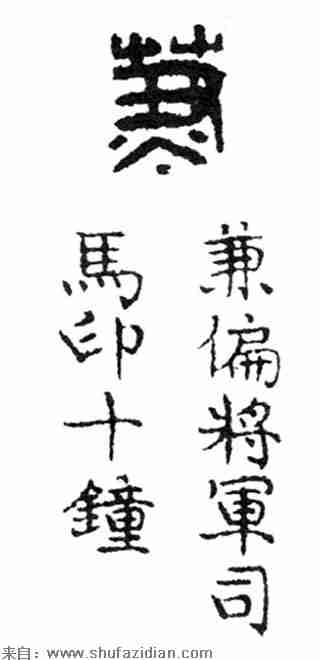 兼
兼偏將軍司
馬印十鐘
来自：www.shufazidian.com